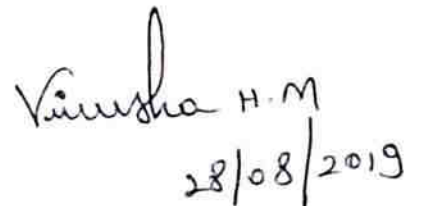 Vinusha H.M
28/08/2019